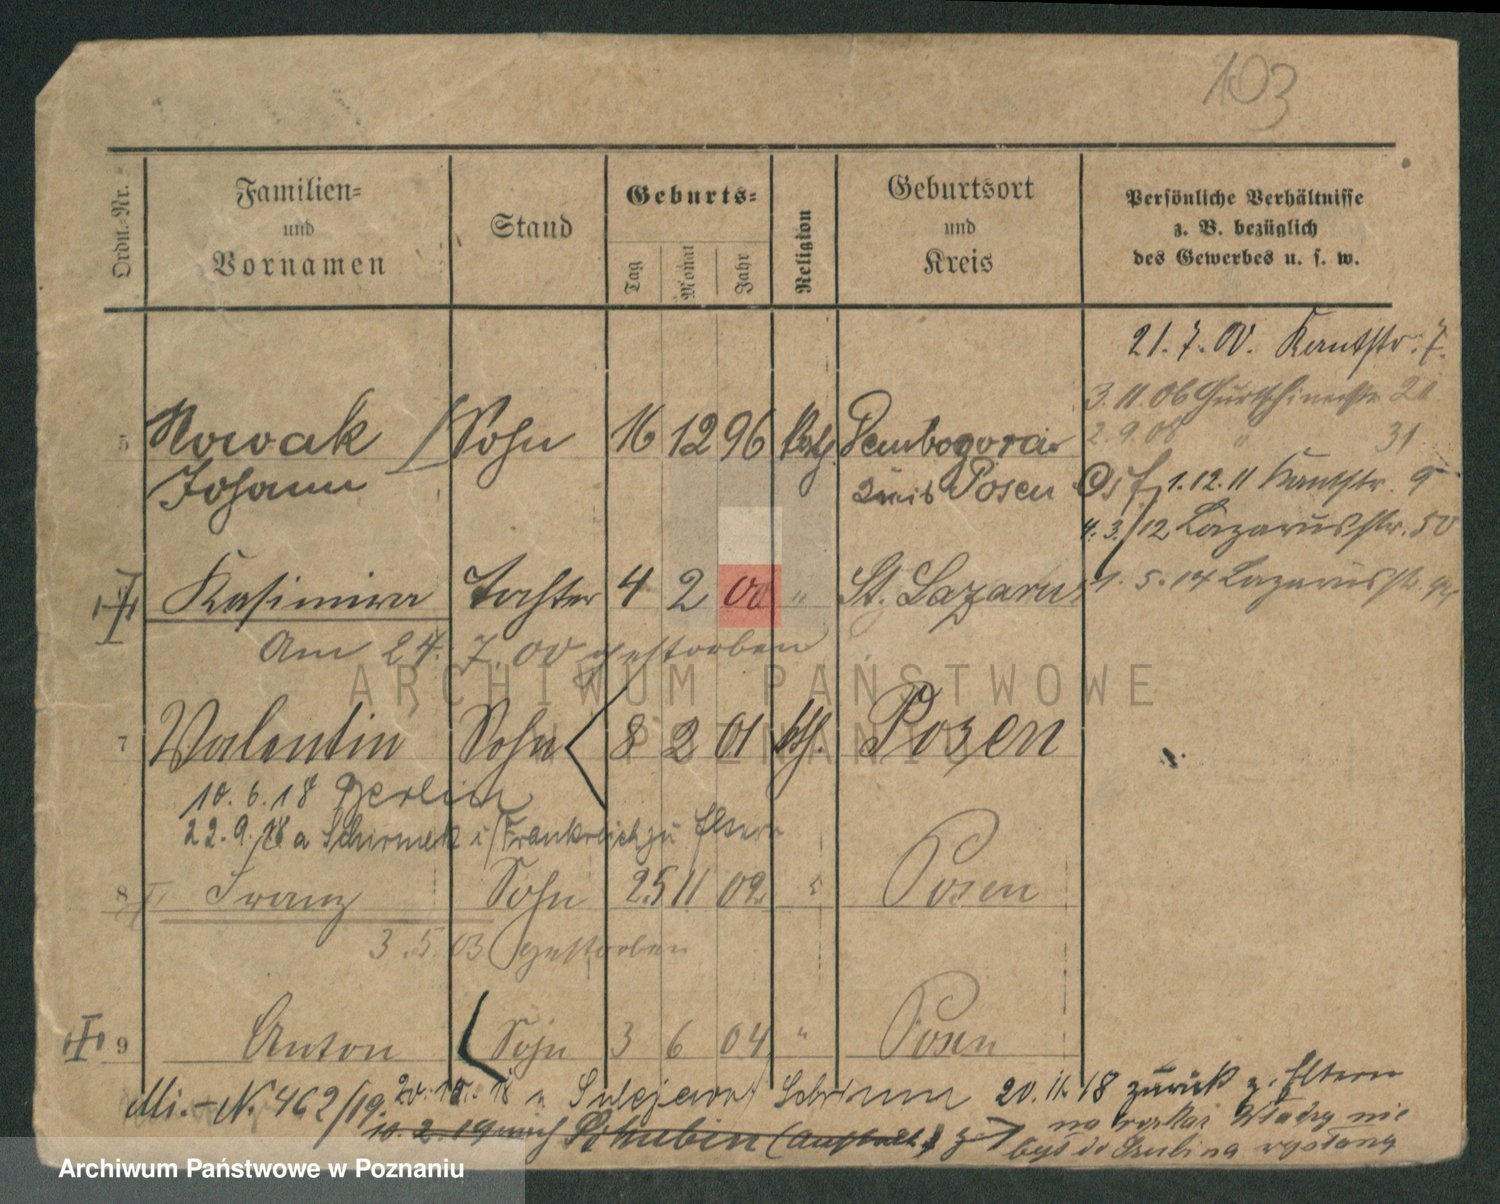 103
Ordn.-Nr.
Familien-
und
Vornamen
Stand
Geburts-
Tag
Monat
Jahr
Religion
Geburtsort
und
Kreis
Persönliche Verhältnisse
z. B. bezüglich
des Gewerbes u. s. w.
21. 7. 00. Kantstr. 7.
3. 11. 06 Gurtschinerstr. 21
2. 9. 08 " 31
1. 12. 11 Kantstr. 9
4. 3. 12 Lazarusstr. 50
1. 5. 14 Lazarusstr.
5 Nowak Sohn 16 12 96 Kath. Dembogora
Johann Kreis Posen
Kasimira Tochter 4 2 00 " St. Lazarus
Am 24. 7. 00 gestorben
7 Valentin Sohn 8 2 01 kth. Posen
10. 6. 18 Berlin
22. 9. 18 a Schirmek i/Frankreich zu Eltern
8 Franz Sohn 25 11 02 " Posen
3. 5. 03 gestorben
9 Anton Sohn 3 6 04 " Posen
Mi.-N. 462/19. 20. 10. 18 n Sulejewo, Schrimm 20. 11. 18 zurück z. Eltern
10. 2. 19 nach Schubin (Anstalt) na Władzy nie
był do Szubina wysłany
ARCHIWUM PAŃSTWOWE
W POZNANIU
Archiwum Państwowe w Poznaniu